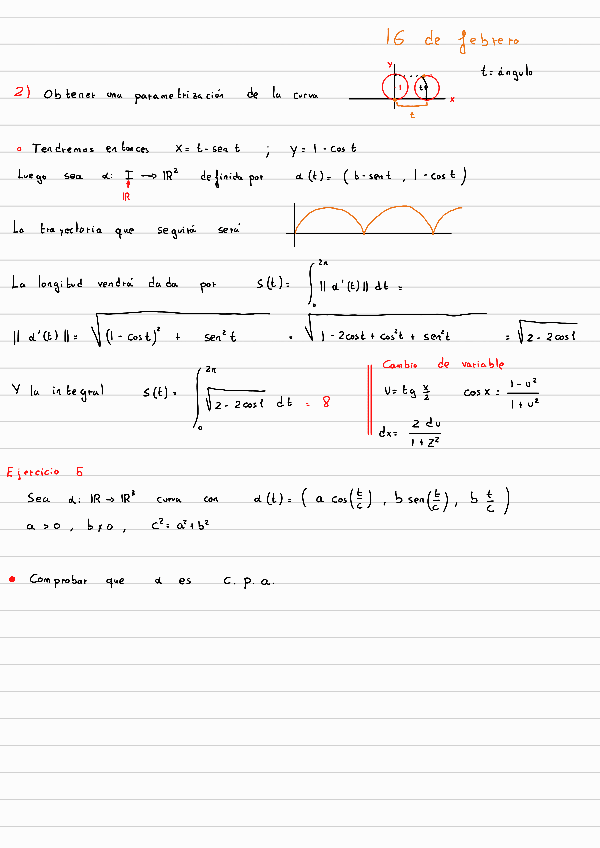 16 de febrero
t = ángulo
2) Obtener una parametrización de la curva
y
1
t
x
t
• Tendremos entonces x = t - sen t ; y = 1 - cos t
Luego sea α: I → IR² definida por α(t) = ( t - sen t , 1 - cos t )
IR
La trayectoria que seguirá será
La longitud vendrá dada por S(t) = ∫₀^2π || α'(t) || dt =
|| α'(t) || = √((1 - cos t)² + sen² t) = √(1 - 2cos t + cos² t + sen² t) = √(2 - 2cos t)
Y la integral S(t) = ∫₀^2π √(2 - 2cos t) dt = 8
Cambio de variable
U = tg x/2 cos x = (1 - u²)/(1 + u²)
dx = (2 du)/(1 + z²)
Ejercicio 5
Sea α: IR → IR³ curva con α(t) = ( a cos(t/c) , b sen(t/c) , b t/c )
a > 0 , b ≠ 0 , c² = a² + b²
• Comprobar que α es c. p. a.